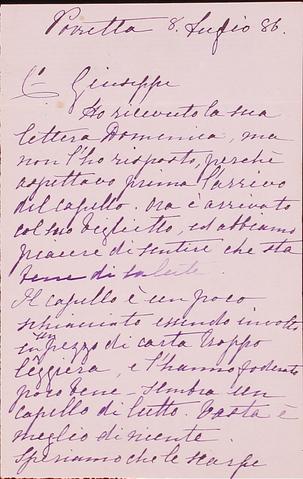 Porretta 8. Luglio 86.
C. Giuseppe
Ho ricevuto la sua
lettera Domenica, ma
non l'ho risposto, perchè
aspettavo prima l'arrivo
del capello. Ora è arrivato
col suo biglietto, ed abbiamo
piacere di sentire che sta
bene di salute.
Il capello è un poco
schiaciato essendo involto
in un pezzo di carta troppo
leggiera, e l'hanno foderato
poco bene - sembra un
capello di lutto. Basta è
meglio di niente.
Speriamo che le scarpe